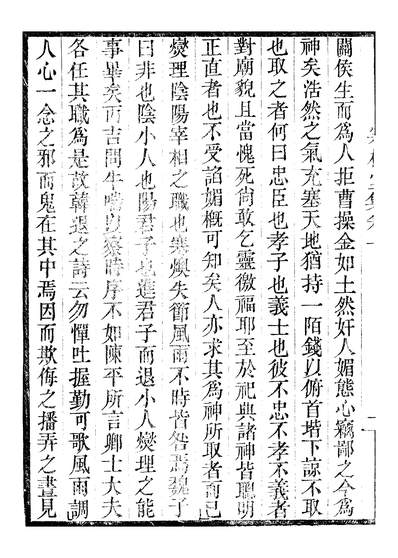 關侯生而爲人拒曹操金如土然奸人媚態心竊鄙之今爲
神矣浩然之氣充塞天地猶持一陌錢以俯首堦下諒不取
也取之者何曰忠臣也孝子也義士也彼不忠不孝不義者
對廟貌且當愧死尚敢乞靈徼福耶至於祀典諸神皆聰明
正直者也不受諂媚槪可知矣人亦求其爲神所取者而已
燮理陰陽宰相之職也寒燠失節風雨不時皆咎焉魏子
曰非也陰小人也陽君子也進君子而退小人燮理之能
事畢矣丙吉問牛喘以察時序不如陳平所言卿士大夫
各任其職爲是故韓退之詩云勿憚吐握勤可歌風雨調
人心一念之邪而鬼在其中焉因而欺侮之播弄之晝見